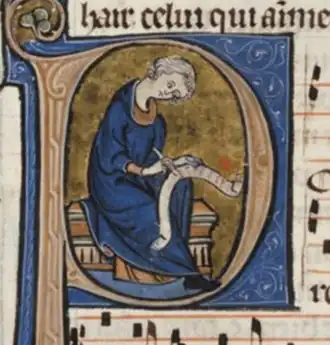 hair celui qui aime